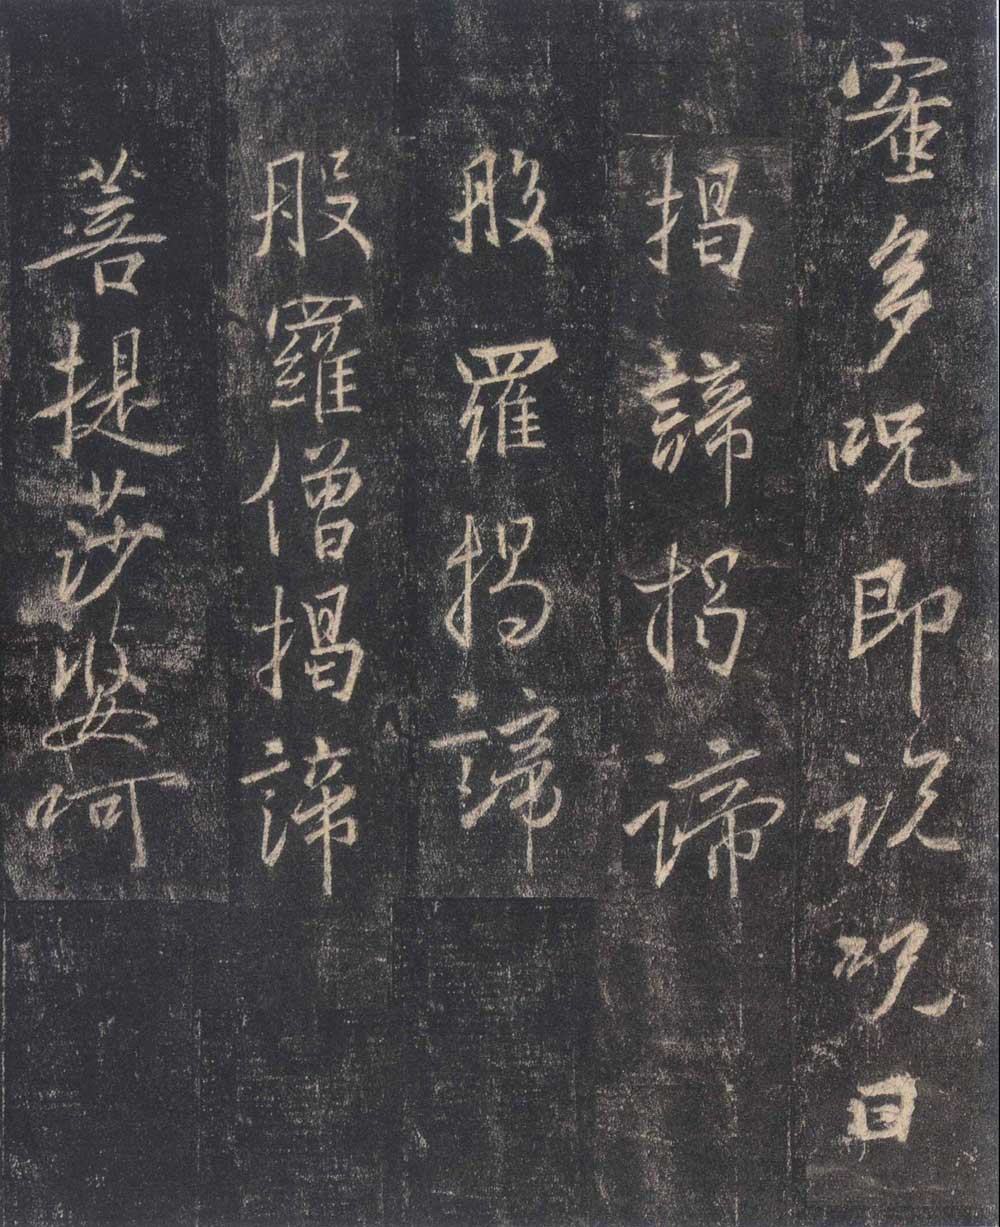 蜜多咒即說咒曰
揭諦揭諦
般羅揭諦
般羅僧揭諦
菩提莎婆呵